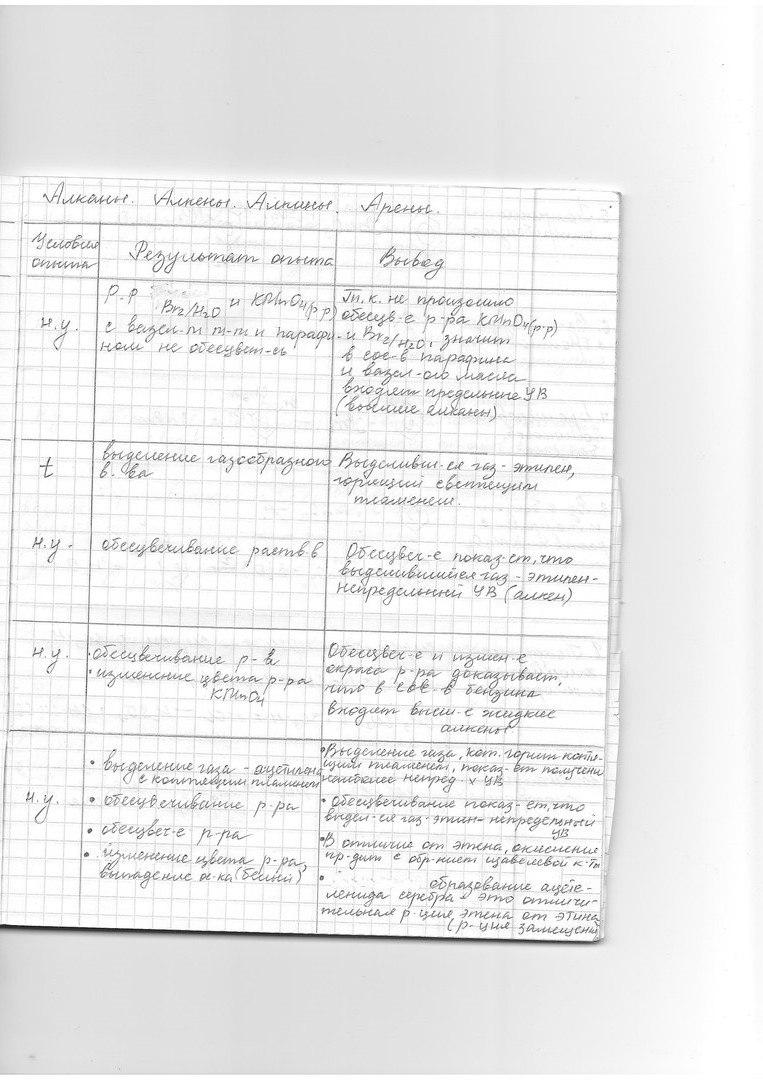 Алканы. Алкены. Алкины. Арены.
Условия опыта
Результат опыта
Вывод
н.у.
Р-р Br2/H2O и KMnO4(р-р)
с вазел-м м-м и парафи-
ном не обесцвет-сь
Т.к. не произошло
обесцв-е р-ра KMnO4(р-р)
и Br2/H2O, значит
в сос-в парафина
и вазел-ого масла
входят предельные УВ
(высшие алканы)
t
выделение газообразного
в-ва
Выделивш-ся газ - этилен,
горящий светящим
пламенем.
н.у.
обесцвечивание раств-в
Обесцвеч-е показ-ет, что
выделившийся газ - этилен-
непредельный УВ (алкен)
н.у.
• обесцвечивание р-в
• изменение цвета р-ра
KMnO4
Обесцвеч-е и измен-е
окраса р-ра доказывает,
что в сос-в бензина
входят высш-е жидкие
алкены
н.у.
• выделение газа - ацетилена
с коптящим пламенем
• обесцвечивание р-ра
• обесцвеч-е р-ра
• изменение цвета р-ра,
выпадение ос-ка (белый)
• Выделение газа, кот. горит коптя-
щим пламенем, показ-ет получени
наиболее непред-х УВ
• обесцвечивание показ-ет, что
выдел-ся газ - этин - непредельный
УВ
• В отличие от этена, окисление
пр-дит с обр-нием щавелевой к-ты
• образование ацете-
ленида серебра - это отличи-
тельная р-ция этена от этина
(р-ция замещений